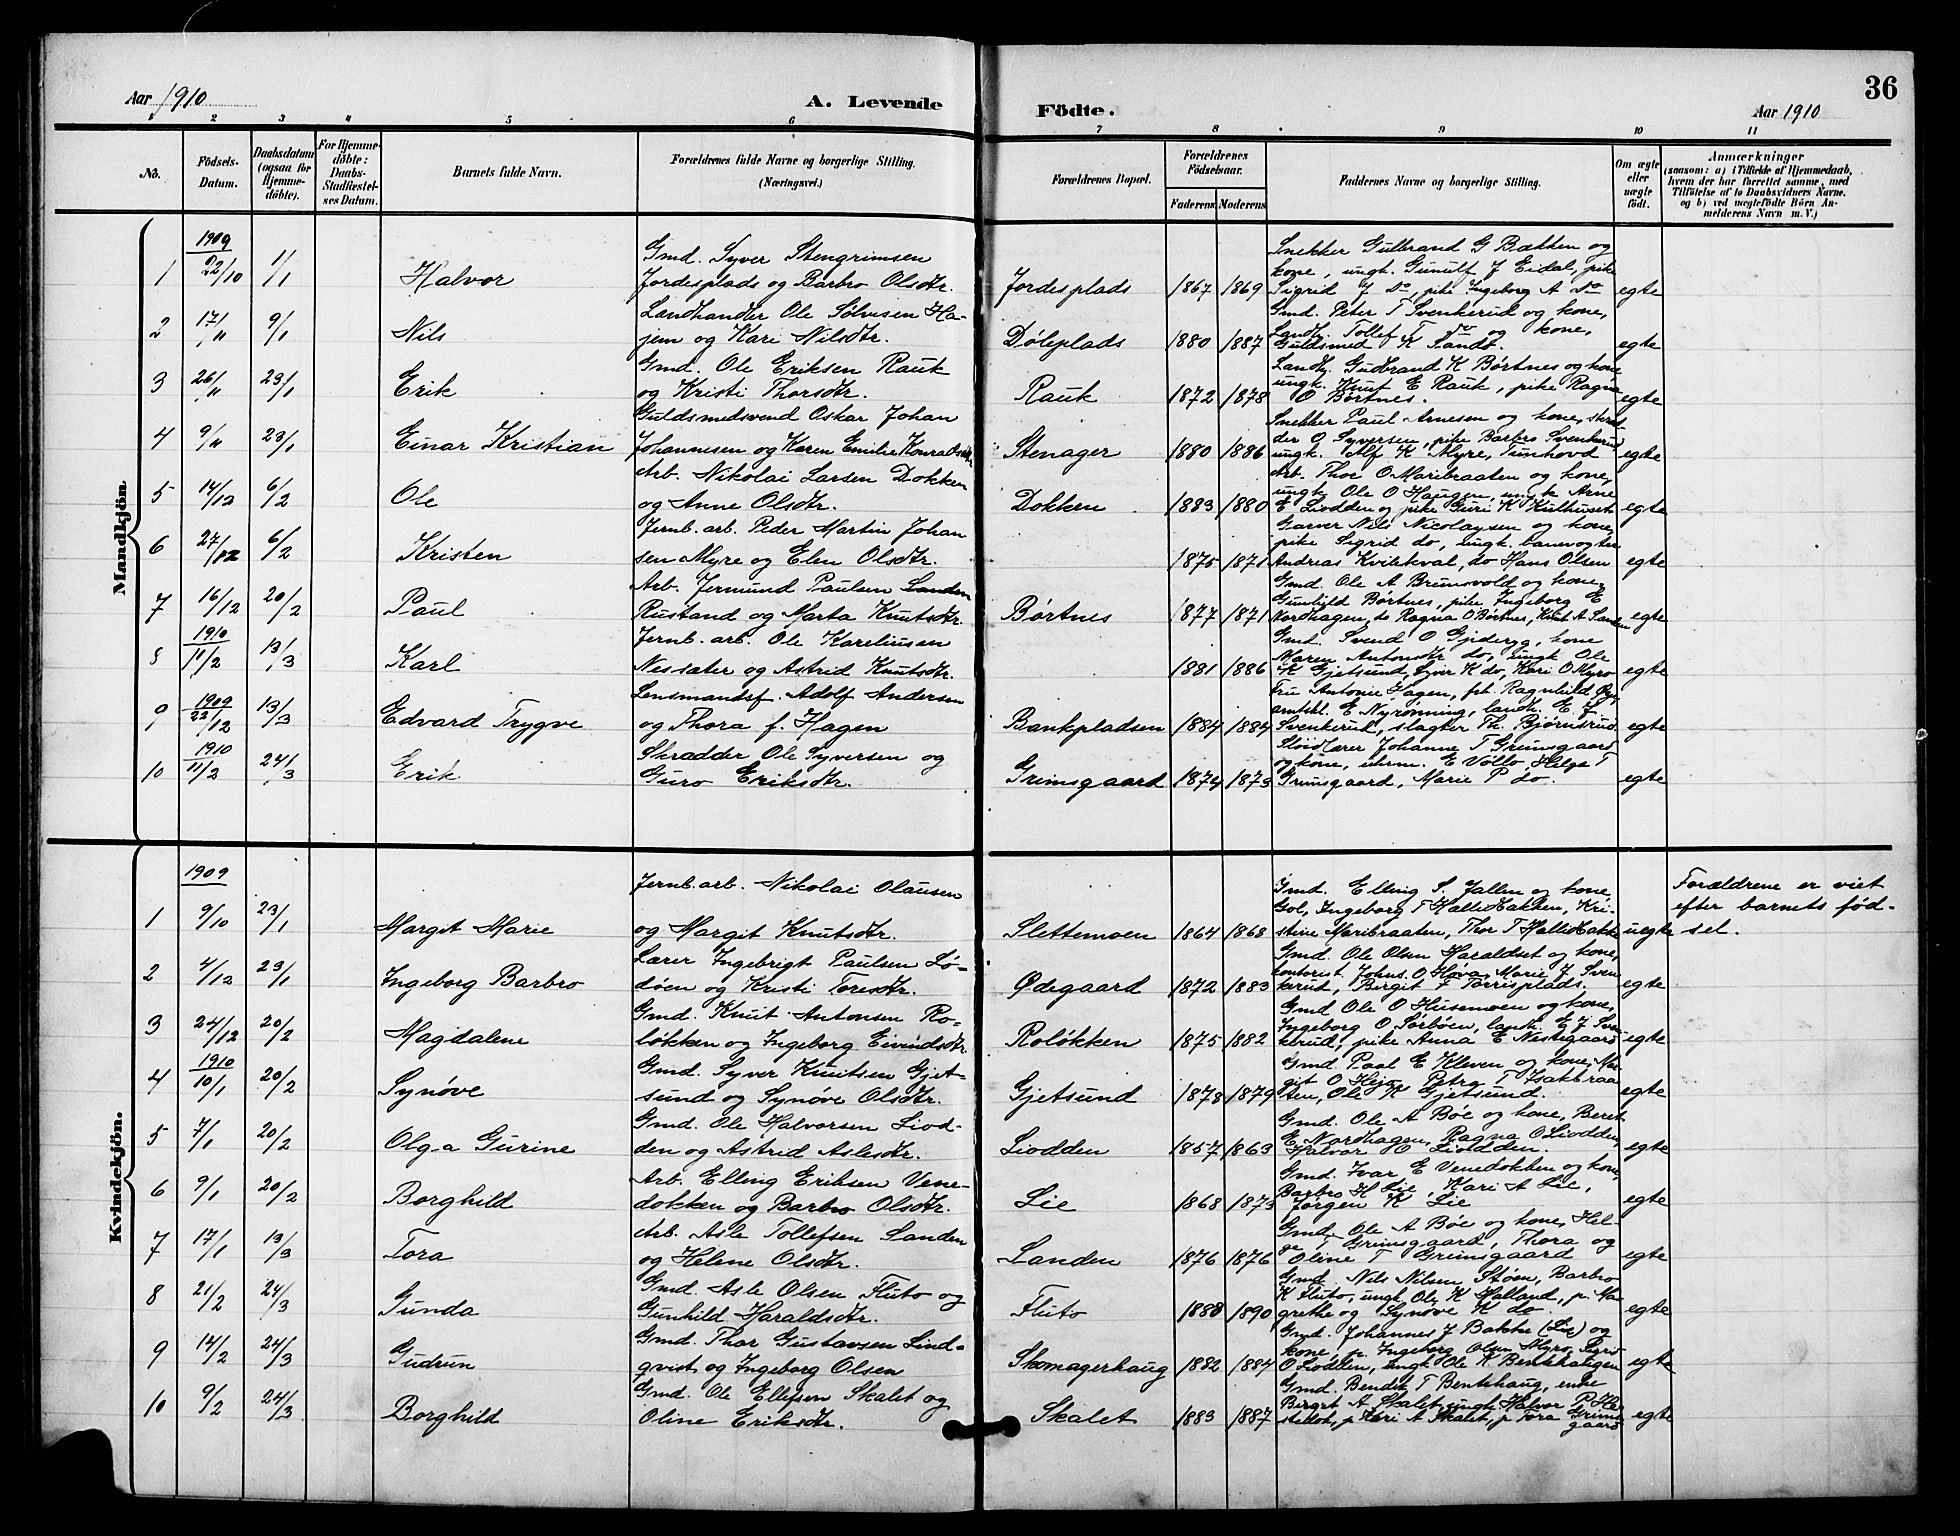 Aar 1910
A. Levende
Födte.
Aar 1910
36
1 2 3 4 5 6 7 8 9 10 11
No.
Födsels-Datum.
Daabsdatum (ogsaa for Hjemme-döbte).
For Hjemme-döbte: Daabs-Stadfæstel-ses Datum.
Barnets fulde Navn.
Forældrenes fulde Navne og borgerlige Stilling. (Næringsvei.)
Forældrenes Bopæl.
Forældrenes Födselsaar.
Faderens Moderens
Faddernes Navne og borgerlige Stilling.
Om ægte eller uægte födt.
Anmærkninger
(saasom: a) i Tilfælde af Hjemmedaab,
hvem der har forrettet samme, med
Tilföielse af to Daabsvidners Navne.
og b) ved uægtefödte Börn An-
melderens Navn m. V.)
Mandkjön.
1 1909 22/10 1/1 Halvor
Gmd. Syver Stengrimsen
Jordesplads og Barbro Olsdtr.
Jordesplads 1867 1869
Snekker Gulbrand G Bækken og
kone, ungk. Gunulf J Eidal, pike
Sigrid J do, pike Ingeborg A do
egte
2 17/" 9/1 Nils
Landhandler Ole Sølvesen Ha-
jem og Kari Nilsdtr.
Døleplads 1880 1887
Gmd. Peter T Svenkerud og kone,
Landh. Tollef T do og kone,
Guldsmed K Sandø.
egte
3 26/" 23/1 Erik
Gmd. Ole Eriksen Rauk
og Kristi Thorsdtr.
Rauk 1872 1878
Landh. Gudbrand K Børtnes og kone
ungk. Knut E Rauk, pike Ragna
O Børtnes.
egte
4 9/" 23/1 Einar Kristian
Guldsmedsvend Oskar Johan
Johannesen og Karen Emilie Konradsdtr
Stenager 1880 1886
Snekker Paul Arnesen og kone, skræd-
der O Syversen, pike Barbro Svenkerud
ungk. Alf K Myre, Tunhovd
egte
5 14/12 6/2 Ole
Arb. Nikolai Larsen Dokken
og Anne Olsdtr.
Dokken 1883 1880
Arb. Thor O Maribraaten og kone,
ungk. Ole O Haugen, ungk Arne
E Liodden og pike Guri K Kulhuset
egte
6 27/12 6/2 Kristen
Jernb. arb. Peder Martin Johan
sen Myre og Elen Olsdtr.
1875 1871
Garver Nils Nicolaysen og kone,
pike Sigrid do, ungk. banevogter
Andreas Kvilekval, do Hans Olsen
egte
7 16/12 20/2 Paul
Arb. Jermund Paulsen Sanden
Rustand og Marta Knutsdtr.
Børtnes 1877 1871
Gmd. Ole A Brunsvold og kone,
Gunhild Børtnes, pike Ingeborg E
Nordhagen, do Ragna O Børtnes, Knut A Sanden
egte
8 1910 11/2 13/3 Karl
Jernb. arb. Ole Kareliusen
Nessater og Astrid Knutsdtr.
1881 1886
Gmd. Svend O Gjderyg, kone
Maren Antonsdtr do, ungk Ole
K Gjetsund, Syver K do, Kari O Myro
egte
9 1909 22/12 13/3 Edvard Trygve
Lensmandsf. Adolf Andersen
og Thora f. Hagen
Bankpladsen 1884 1884
Fru Antonie Hagen, frk. Ragnhild
amtskl. E Nyrønning, landh. E J
Svenkerud, slagter Th. Bjørnsrud
egte
10 1910 11/2 24/3 Erik
Skrædder Ole Syversen og
Guro Eriksdtr.
Grimsgaard 1874 1873
Sløidlærer Johanne T Grimsgaard
og kone, uhrm. E Vøllo Helge T
Grimsgaard, Marie P do.
egte
Kvindekjön.
1 1909 9/10 23/1 Margit Marie
Jernb. arb. Nikolai Olausen
og Margit Knutsdtr.
Slettemoen 1864 1868
Gmd. Elling S. Jallen og kone,
Gol, Ingeborg T Hallibakken, Kri-
stine Maribraaten, Thor T Hallibakke
uegte
Forældrene er viet
efter barnets fød-
sel.
2 4/12 23/1 Ingeborg Barbro
Lærer Ingebrigt Paulsen Lø-
døen og Kristi Toresdtr.
Ødegaard 1872 1883
Gmd. Ole Olsen Haraldset og kone,
kontorist. Johns. O Høva, Marie J Sven
kerud, Birgit F Torrisplads.
egte
3 24/12 20/2 Magdalene
Gmd. Knut Antonsen Ro-
løkken og Ingeborg Eivindsdtr.
Roløkken 1875 1882
Gmd Ole O Husemoen og kone,
Ingeborg O Sørbøen, landh. E J Sven
kerud, pike Anna E Nestegaard
egte
4 1910 10/1 20/2 Synøve
Gmd. Syver Knutsen Gjet-
sund og Synøve Olsdtr.
Gjetsund 1878 1879
Gmd. Paal E Kleven og kone, Mar
git O Heje, Petra T Isakbraa
ten, Ole K Gjetsund.
egte
5 7/1 20/2 Olga Gurine
Gmd. Ole Halvorsen Liod-
den og Astrid Aslesdtr.
Liodden 1857 1863
Gmd. Ole A Bøe og kone, Berit
E Nordhagen, Ragna O Liodden,
Halvor O Liodden.
egte
6 9/1 20/2 Borghild
Arb. Elling Eriksen Vene-
dokken og Barbro Olsdtr.
Lie 1868 1873
Gmd. Ivar E Venedokken og kone,
Barbro H Lie, Kari A Lie,
Jørgen K Lie
egte
7 17/1 13/3 Tora
Arb. Asle Tollefsen Sanden
og Helene Olsdtr.
Sanden 1876 1876
Gmd. Ole A Bøe og kone, Hel-
ge T Grimsgaard, Thora og
Oline T Grimsgaard
egte
8 21/2 24/3 Gunda
Gmd. Asle Olsen Fluto og
Gunhild Haraldsdtr.
Fluto 1888 1890
Gmd. Nils Nilsen Støen, Barbro
K Fluto, ungk. Ole K Halland, p. Mar
grethe og Synøve K do.
egte
9 14/2 24/3 Gudrun
Gmd. Thor Gustavsen Lind-
qvist og Ingeborg Olsen
Skomagerhaug 1882 1884
Gmd. Johannes J Bakke (Lie) og
kone, p. Ingeborg Olsen Myro, Sigrid
O Liodden, ungk Ole K Bentehaugen
egte
10 9/2 24/3 Borghild
Gmd. Ole Ellefsen Skalet og
Oline Eriksdtr.
Skalet 1883 1887
Gmd. Bendik T Bentehaug, enke
Birgit A Skalet, ungk Halvor P He
stedet, p Kari A Skalet, p Tora Grims
gaard
egte